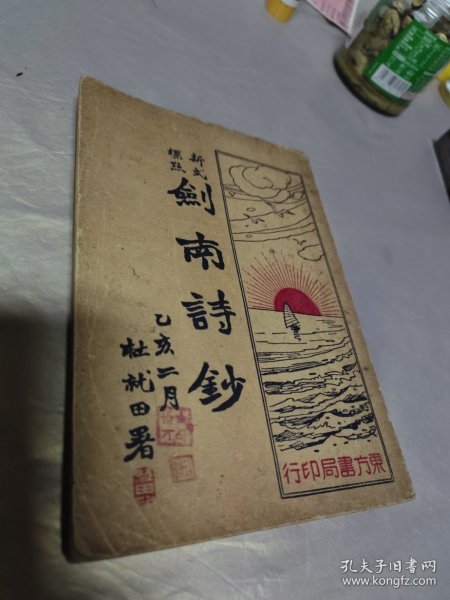 新式
標點
劍南詩鈔
乙亥二月
杜就田署
東方書局印行
孔夫子旧书网
www.kongfz.com